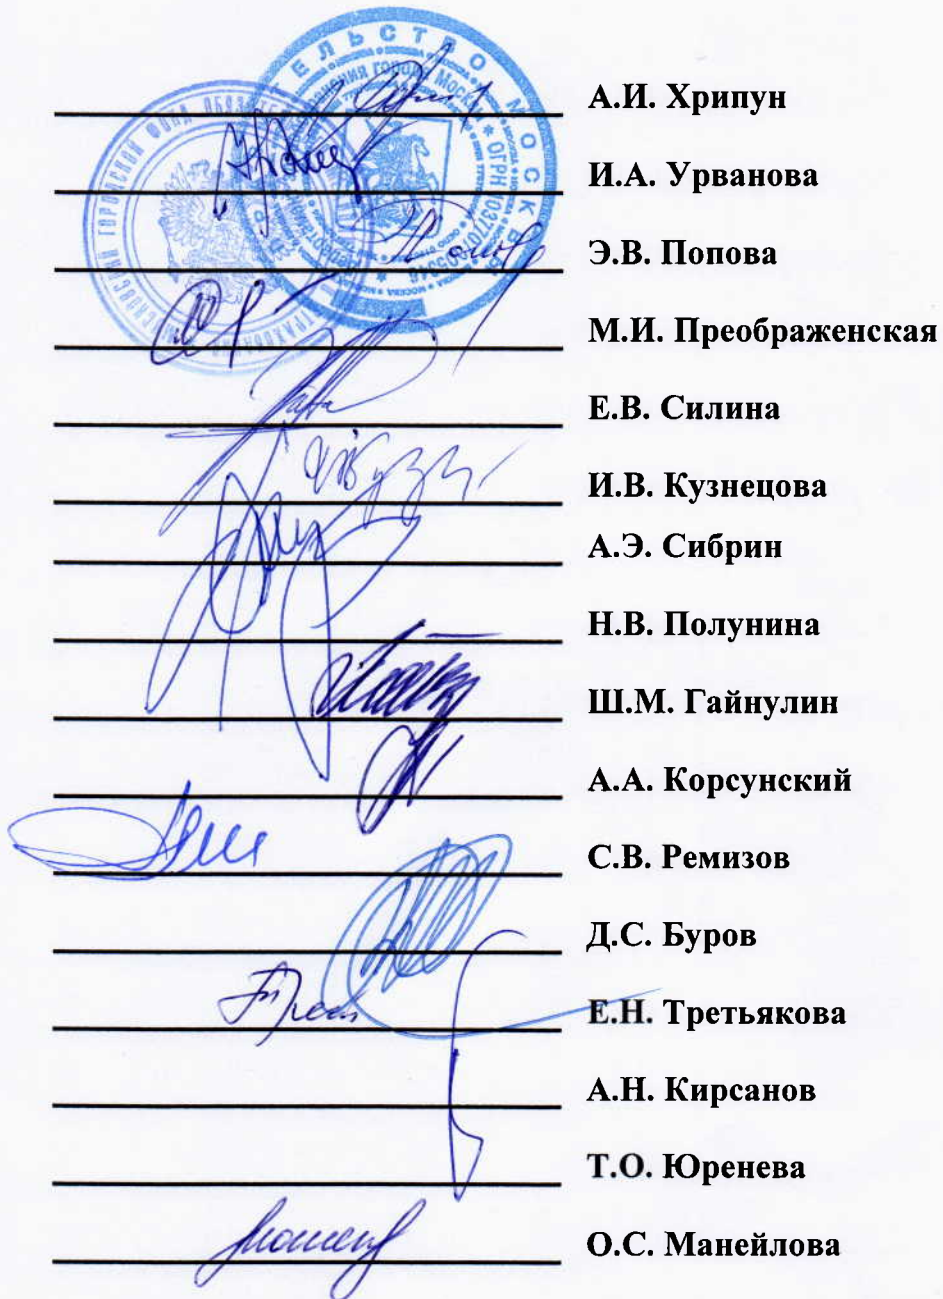 А.И. Хрипун
И.А. Урванова
Э.В. Попова
М.И. Преображенская
Е.В. Силина
И.В. Кузнецова
А.Э. Сибрин
Н.В. Полунина
Ш.М. Гайнулин
А.А. Корсунский
С.В. Ремизов
Д.С. Буров
Е.Н. Третьякова
А.Н. Кирсанов
Т.О. Юренева
О.С. Манейлова